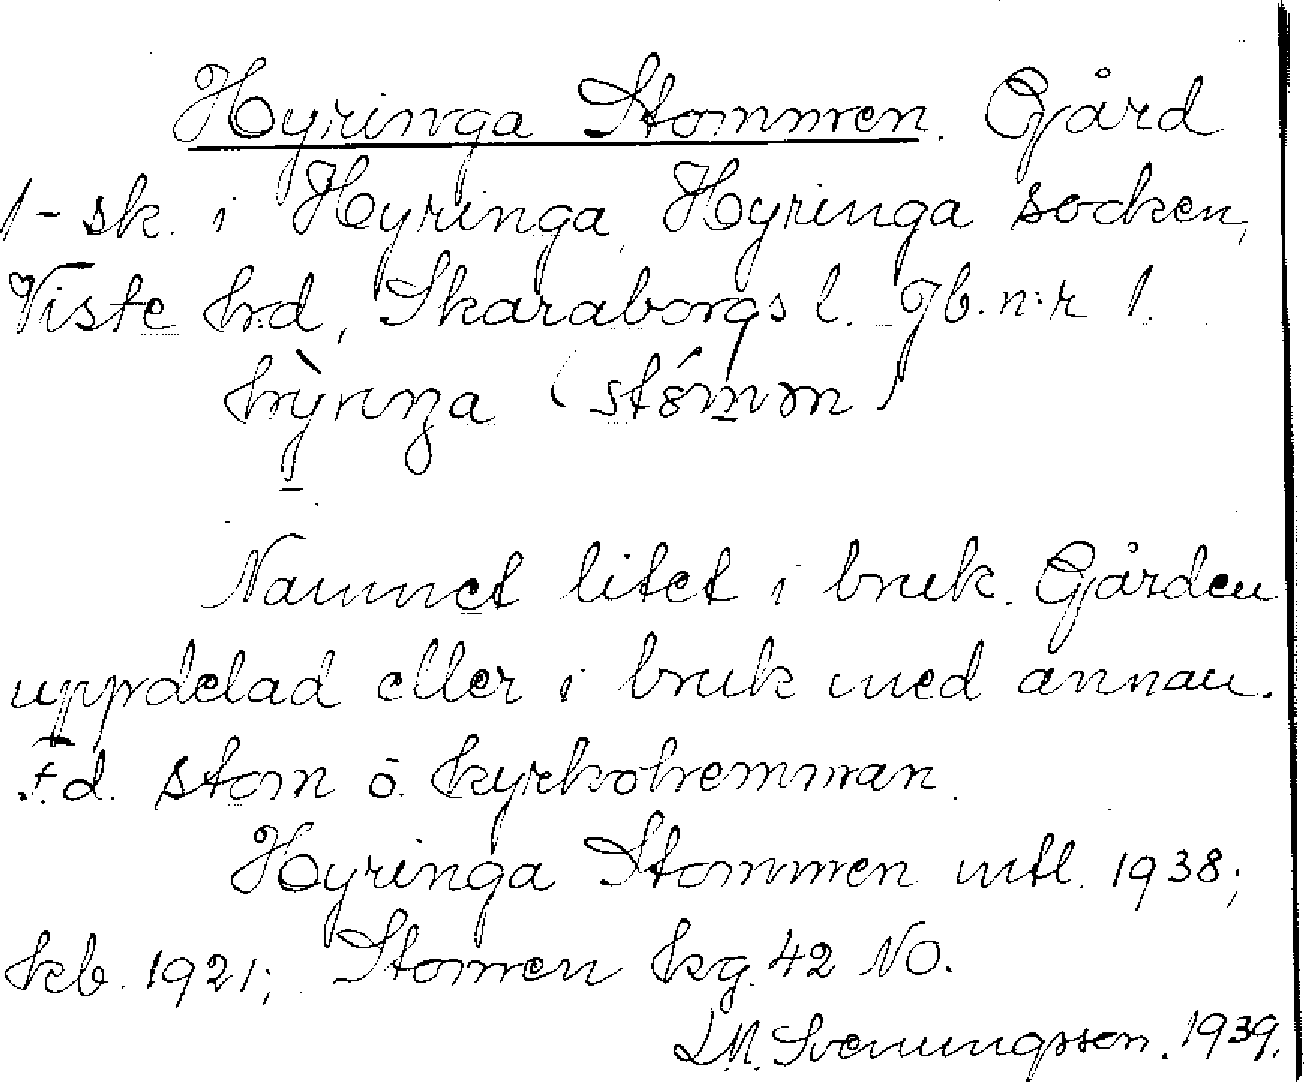 Hyringa Stommen. Gård
1-sk. i Hyringa, Hyringa socken,
Viste hrd, Skaraborgs l. Jb. n:r 1.
(stómɔn)
Namnet litet i bruk. Gården
uppdelad eller i bruk med annan.
F.d. stom o. kyrkohemman.
Hyringa Stommen mtl. 1938;
kb. 1921; Stomen kg. 42 NO.
L.M. Svenungsson. 1939.